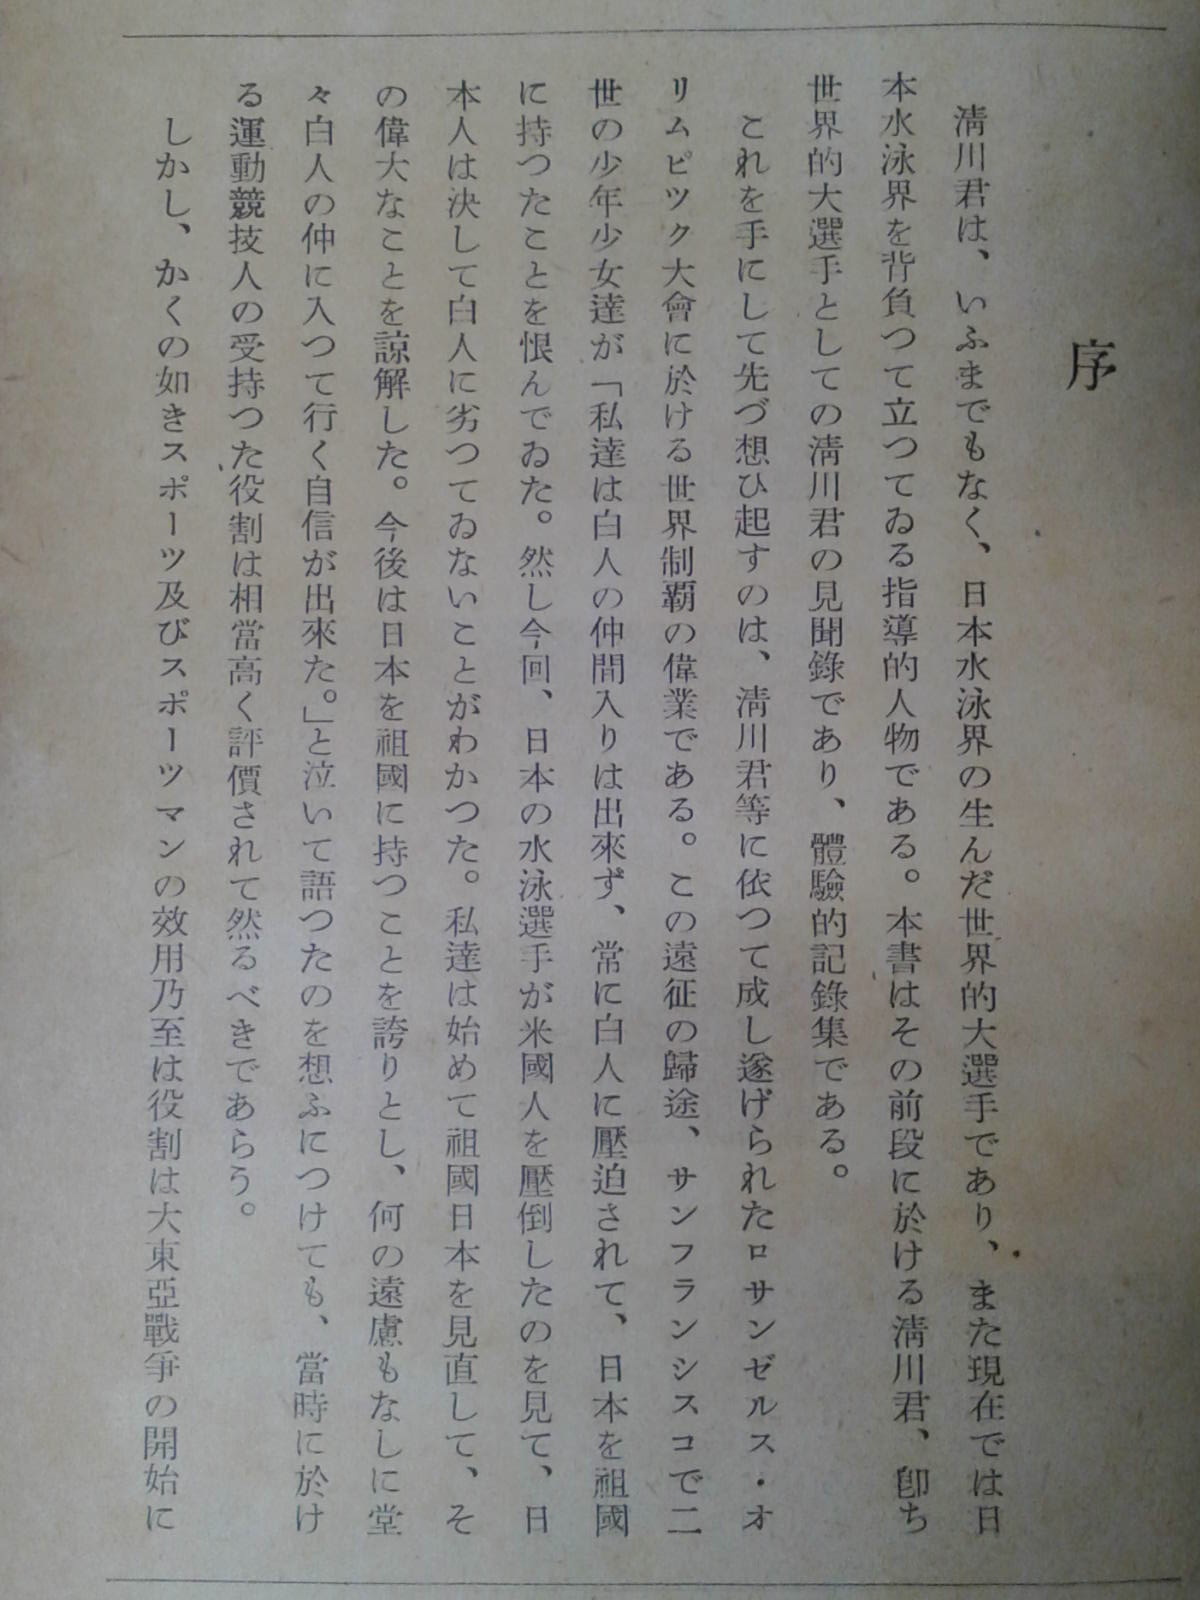 序
淸川君は、いふまでもなく、日本水泳界の生んだ世界的大選手であり、また現在では日
本水泳界を背負つて立つてゐる指導的人物である。本書はその前段に於ける淸川君、卽ち
世界的大選手としての淸川君の見聞錄であり、體驗的記錄集である。
これを手にして先づ想ひ起すのは、淸川君等に依つて成し遂げられたロサンゼルス・オ
リムピツク大會に於ける世界制覇の偉業である。この遠征の歸途、サンフランシスコで二
世の少年少女達が「私達は白人の仲間入りは出來ず、常に白人に壓迫されて、日本を祖國
に持つたことを恨んでゐた。然し今回、日本の水泳選手が米國人を壓倒したのを見て、日
本人は決して白人に劣つてゐないことがわかつた。私達は始めて祖國日本を見直して、そ
の偉大なことを諒解した。今後は日本を祖國に持つことを誇りとし、何の遠慮もなしに堂
々白人の仲に入つて行く自信が出來た。」と泣いて語つたのを想ふにつけても、當時に於け
る運動競技人の受持つた役割は相當高く評價されて然るべきであらう。
しかし、かくの如きスポーツ及びスポーツマンの效用乃至は役割は大東亞戰爭の開始に